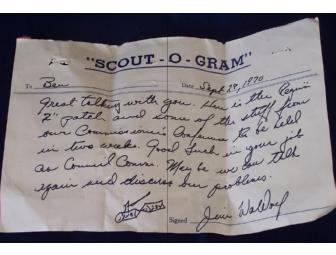 "SCOUT-O-GRAM"
To Ben Date Sept 29, 1970
Great talking with you. Here is the Region
2" patch and some of the stuff from
our Commissioners Conference to be held
in two weeks. Good Luck in your job
as Council Comm. Maybe we can talk
again and discuss our problems.
Signed Jim